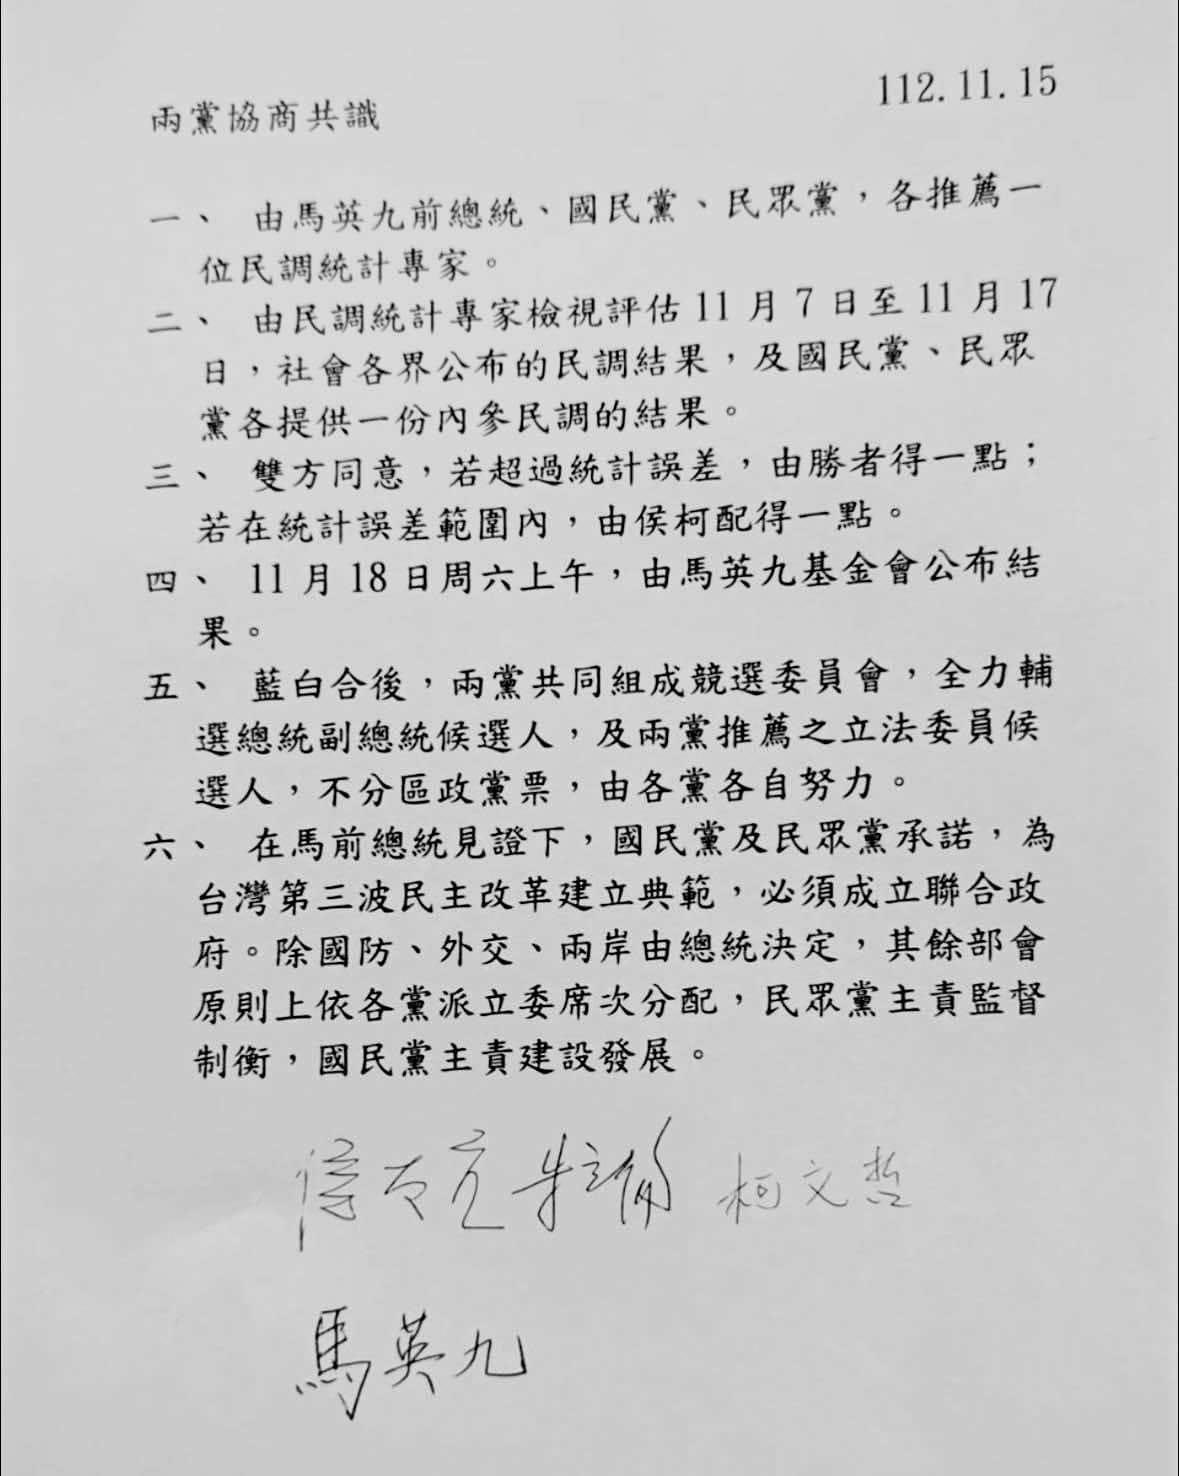 112.11.15
兩黨協商共識
一、 由馬英九前總統、國民黨、民眾黨，各推薦一
位民調統計專家。
二、 由民調統計專家檢視評估11月7日至11月17
日，社會各界公布的民調結果，及國民黨、民眾
黨各提供一份內參民調的結果。
三、 雙方同意，若超過統計誤差，由勝者得一點；
若在統計誤差範圍內，由侯柯配得一點。
四、 11月18日周六上午，由馬英九基金會公布結
果。
五、 藍白合後，兩黨共同組成競選委員會，全力輔
選總統副總統候選人，及兩黨推薦之立法委員候
選人，不分區政黨票，由各黨各自努力。
六、 在馬前總統見證下，國民黨及民眾黨承諾，為
台灣第三波民主改革建立典範，必須成立聯合政
府。除國防、外交、兩岸由總統決定，其餘部會
原則上依各黨派立委席次分配，民眾黨主責監督
制衡，國民黨主責建設發展。
侯友宜 朱立倫 柯文哲
馬英九